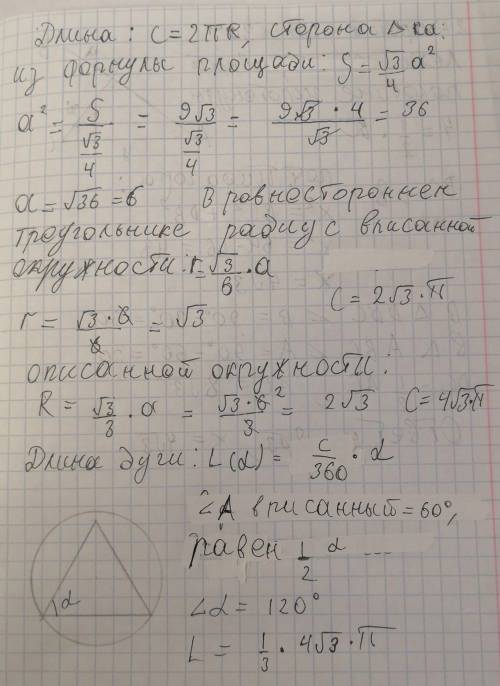 Длина: C=2πR; сторона Δка:
из формулы площади: S = √3/4 a²
a² = S/(√3/4) = 9√3/(√3/4) = 9√3 · 4/√3 = 36
a = √36 = 6 В равностороннем
треугольнике радиус вписанной
окружности: r = √3/6 · a
C = 2√3 · π
r = √3 · 6/6 = √3
описанной окружности:
R = √3/3 · a = √3 · 6²/3 = 2√3 C = 4√3π
Длина дуги: L(α) = C/360 · α
∠A вписанный = 60°,
равен 1/2 α
∠α = 120°
α
L = 1/3 · 4√3 · π